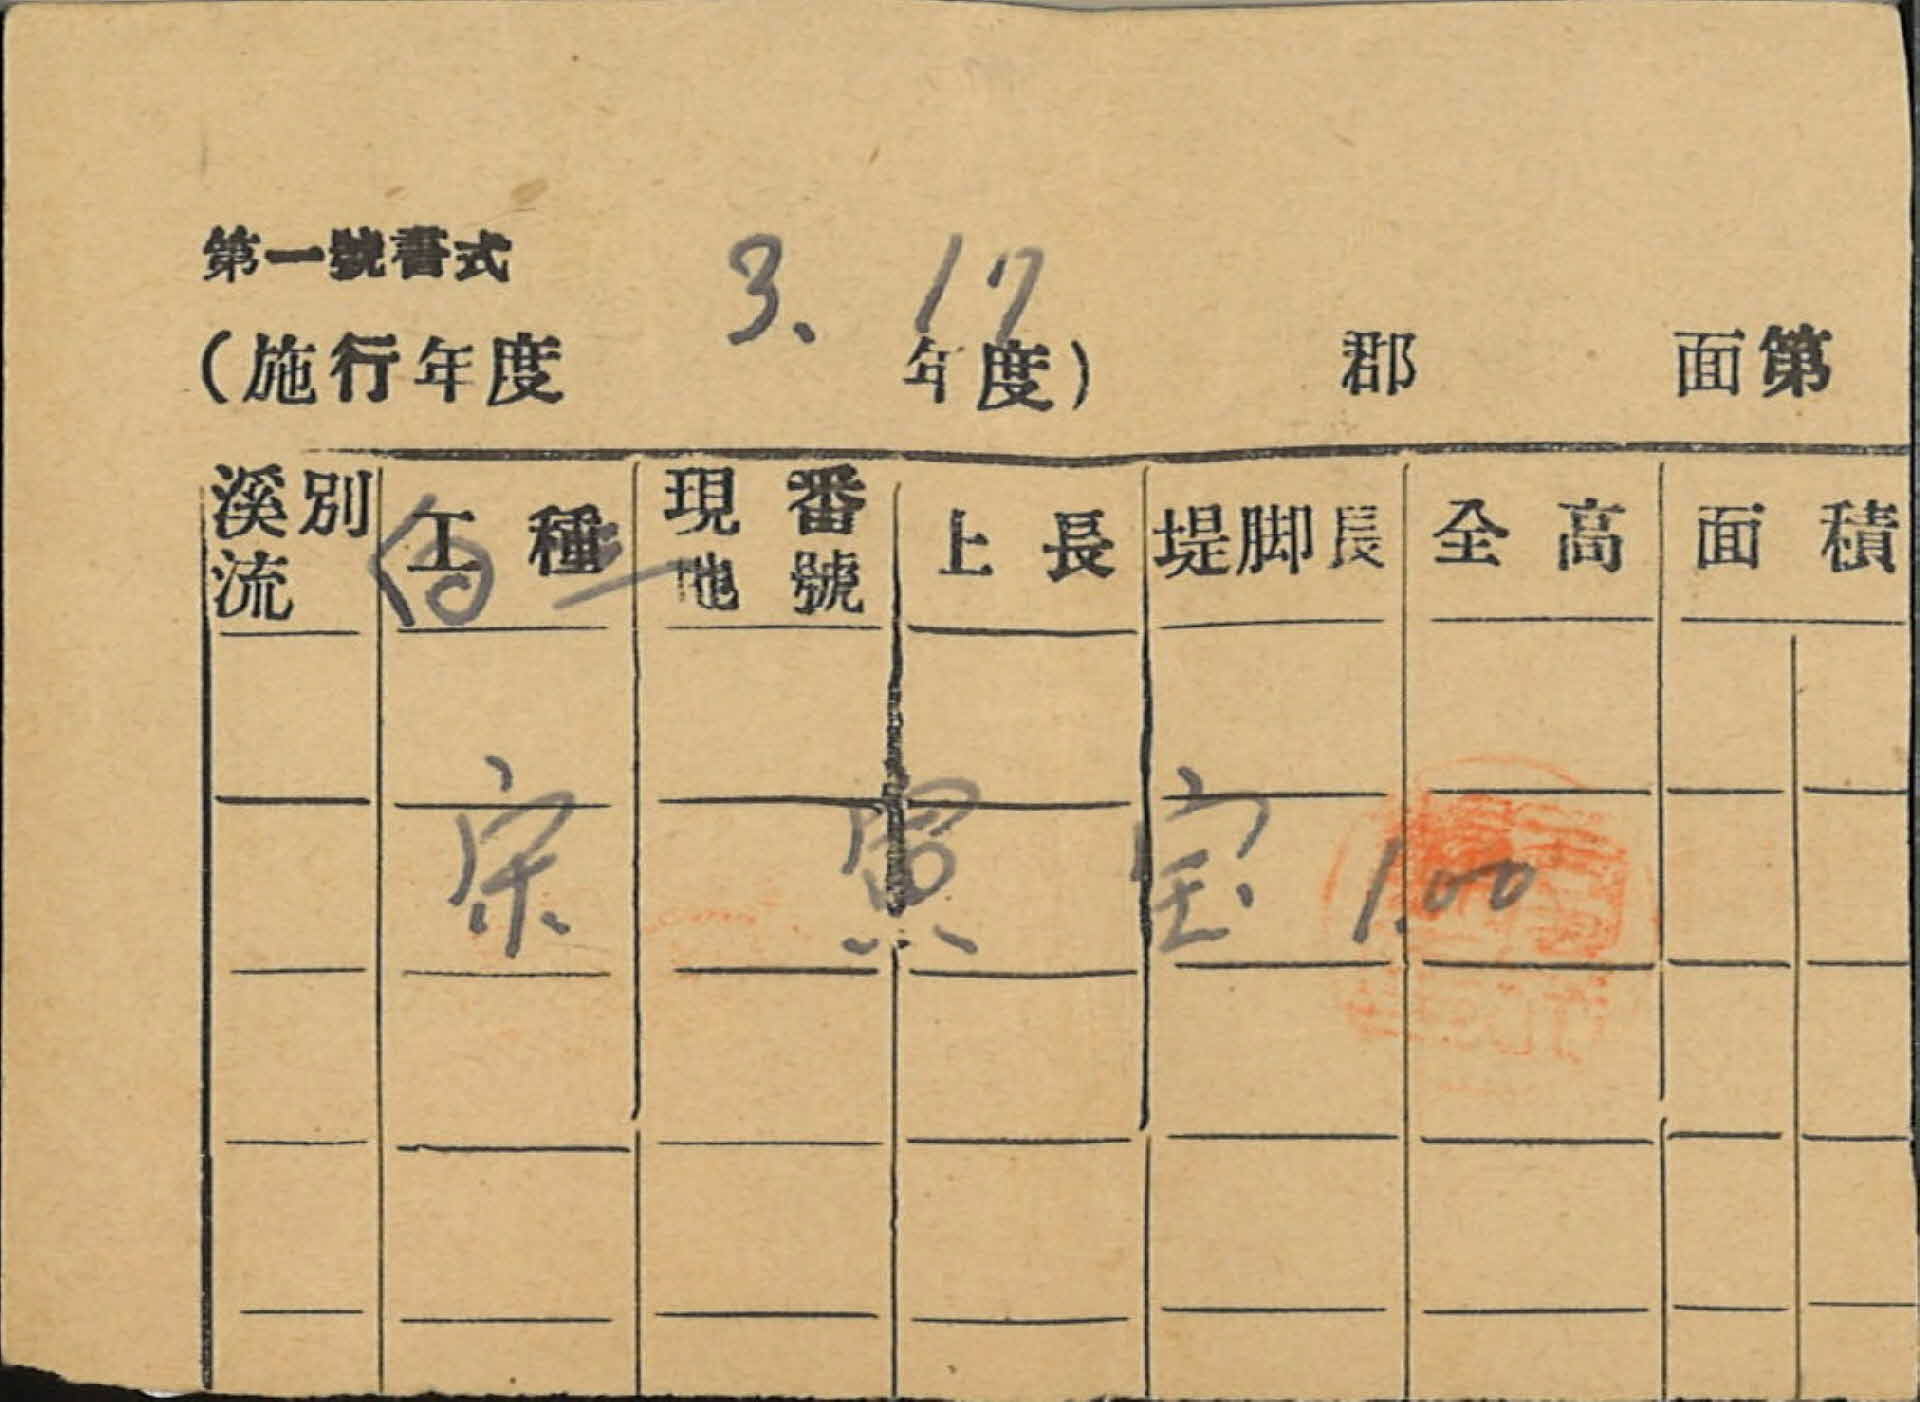 第一號書式
3. 17
(施行年度 年度) 郡 面第
溪流別 工種 現地番號 上長 堤脚長 全高 面積
宋 寅 宝 1.00